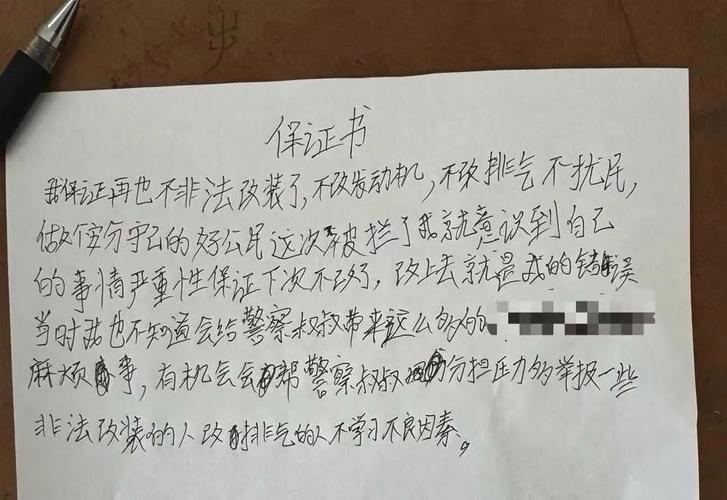 保证书
我保证再也不非法改装了,不改发动机,不改排气不扰民,
做个安分守己的好公民这次被拦了我就意识到自己
的事情严重性保证下次不改了,改上去就是我的错误
当时我也不知道会给警察叔叔带来这么多的
麻烦事,有机会会帮警察叔叔分担压力多举报一些
非法改装的人改排气的人不学习不良因素。